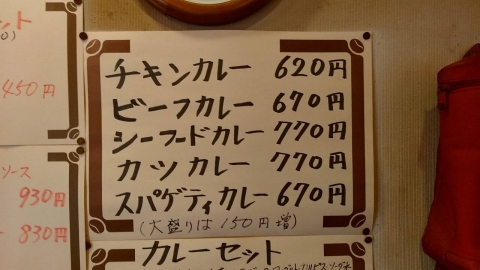 ット
450円
チキンカレー 620円
ビーフカレー 670円
シーフードカレー 770円
カツカレー 770円
スパゲティカレー 670円
(大盛りは150円増)
ソース
930円
830円
カレーセット